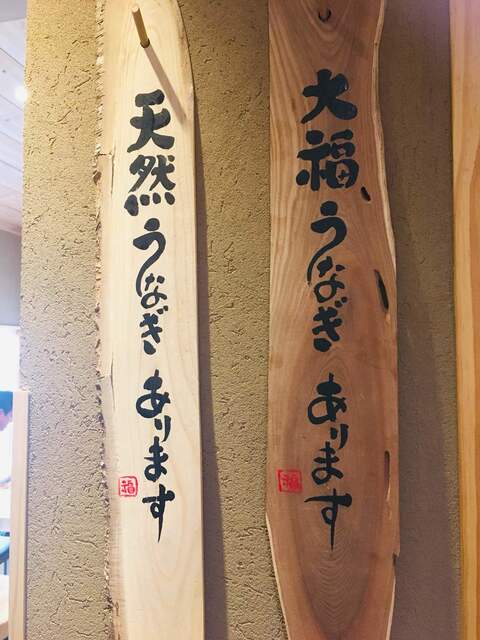 大福うなぎあります
福
天然うなぎあります
福